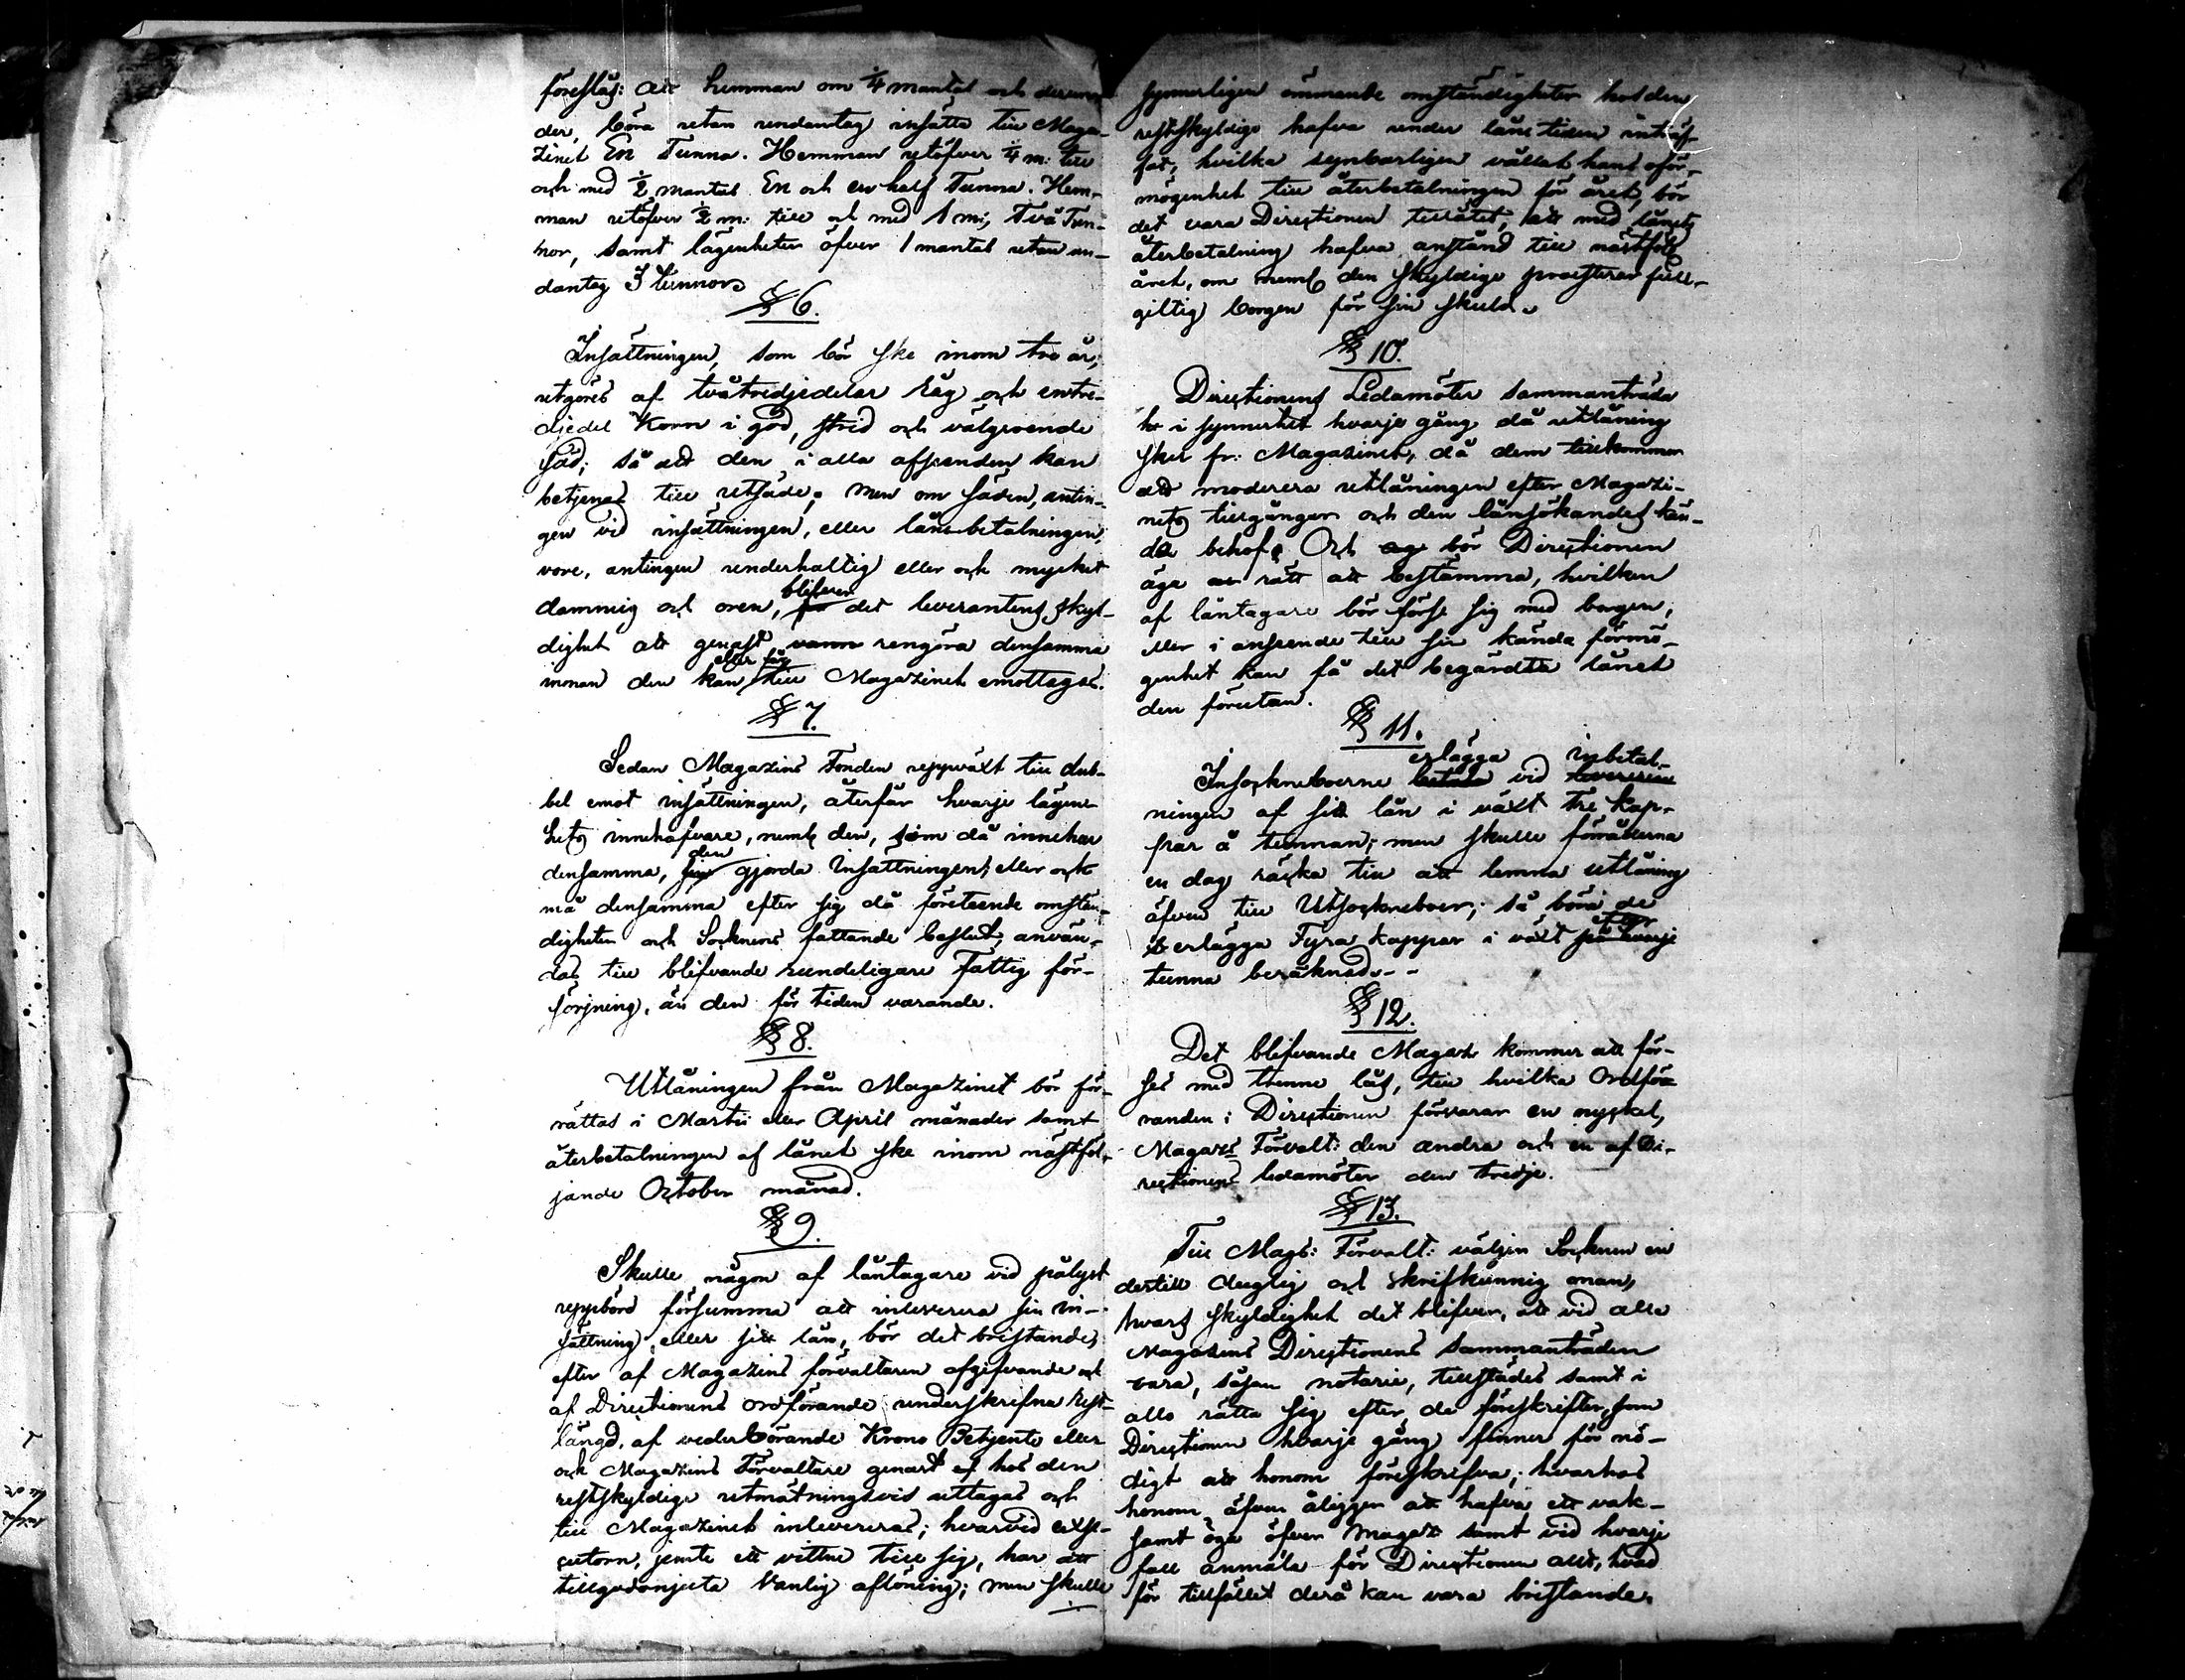 föreslås: att hemman om 1/4 mantal och derun
der, böra utan undantag insätta till Maga-
zinet En Tunna. Hemman utöfver 1/4 m: till
och med 1/2 mantal En och en half Tunna. Hem-
man utöfver 1/2 m: till och med 1 m:, Två Tun-
nor, samt lägenheter öfver 1 mantal utan un-
dantag 3 tunnor.
§ 6.
Insättningen, som bör ske inom tre år,
utgöres af tvåtredjedelar Råg och entre-
djedel Korn i god, strid och välgroende
säd; så att den i alla afseenden kan
betjenas till utsäde; men om säden, antin-
gen vid insättningen, eller lånebetalningen,
vore, antingen underhaltig eller och mycket
dammig och oren, blifver det leverantens skyl-
dighet att genast rengöra densamma
innan den kan eller får till Magazinet emottagas.
§ 7.
Sedan Magazins Fonden uppväxt till dub-
bel emot insättningen, återfår hvarje lägen-
hets innehafvare, neml den, som då innehar
densamma, den gjorda Insättningen; eller ock
må densamma efter sig då företeende omstän-
digheter och Socknens fattande beslut, använ-
das till blifvande rundeligare Fattig för-
sörjning, än den för tiden varande.
§ 8.
Utlåningen från Magazinet bör för-
rättas i Martii eller April månader samt
återbetalningen af lånet ske inom nästföl-
jande October månad.
§ 9.
Skulle någon af låntagare vid pålyst
uppbörd försumma att inleverera sin in-
sättning, eller sitt lån, bör det bristande,
efter af Magazins förvaltaren afgifvande och
af Directionens ordförande underskrifna Rest-
längd, af vederbörande Krono Betjente eller
ock Magazins Förvaltare genast hos den
restskyldige utmätningsvis uttagas och
till Magazinet inlevereras; hvarvid exse-
cutorn, jemte ett vittne till sig, har att
tillgodonjuta Vanlig aflöning; men skulle
synnerligen ömmande omständigheter hos den
restskyldige hafva under låne tiden inträf-
fat, hvilka synbarligen vållat hans oför-
mögenhet till återbetalningen för året, bör
det vara Directionen tillåtet, att med lånets
återbetalning hafva anstånd till nästföljd
året, om neml den skyldige presterar full-
giltig borgen för sin skuld.
§ 10.
Directionens Ledamöter sammanträda
i synnerhet hvarje gång då utlåning
sker fr: Magazinet, då dem tillkommer
att moderera utlåningen efter Magazi-
nets tillgångar och den lånsökandes kän-
da behof. Och bör Directionen
äga rätt att bestämma, hvilken
af låntagare bör förse sig med borgen,
eller i anseende till sin kända förmö-
genhet kan få det begärdta lånet
den förutan.
§ 11.
Insockneboerne erlägga vid inbetal-
ningen af sitt lån i växt Tre kap-
par å tunnan; men skulle förråderna
en dag räcka till att lemna utlåning
äfven till Utsockneboer; så böra de
erlägga Fyra kappar i växt efter
tunna beräknad. - -
§ 12.
Det blifvande Magaz: kommer att för-
ses med trenne lås, till hvilka Ordföra
randen i Directionen förvarar en nyckel,
Magaz: Förvalt: den andra och en af Di-
rectionens ledamöter den tredje.
§ 13.
Till Mags: Förvalt: väljer Socknen en
dertill duglig och skrifkunnig man,
hvars skyldighet det blifver, att vid alla
Magazins Directionens sammanträden
vara, såsom notarie, tillstädes samt i
allo rätta sig efter de föreskrifter, som
Directionen hvarje gång finner för nö-
digt att honom föreskrifva; hvarhos
honom äfven åligger att hafva ett vak-
samt öga öfver Magaz: samt vid hvarje
fall anmäla för Directionen allt, hvad
för tillfället derå kan vara bristande.